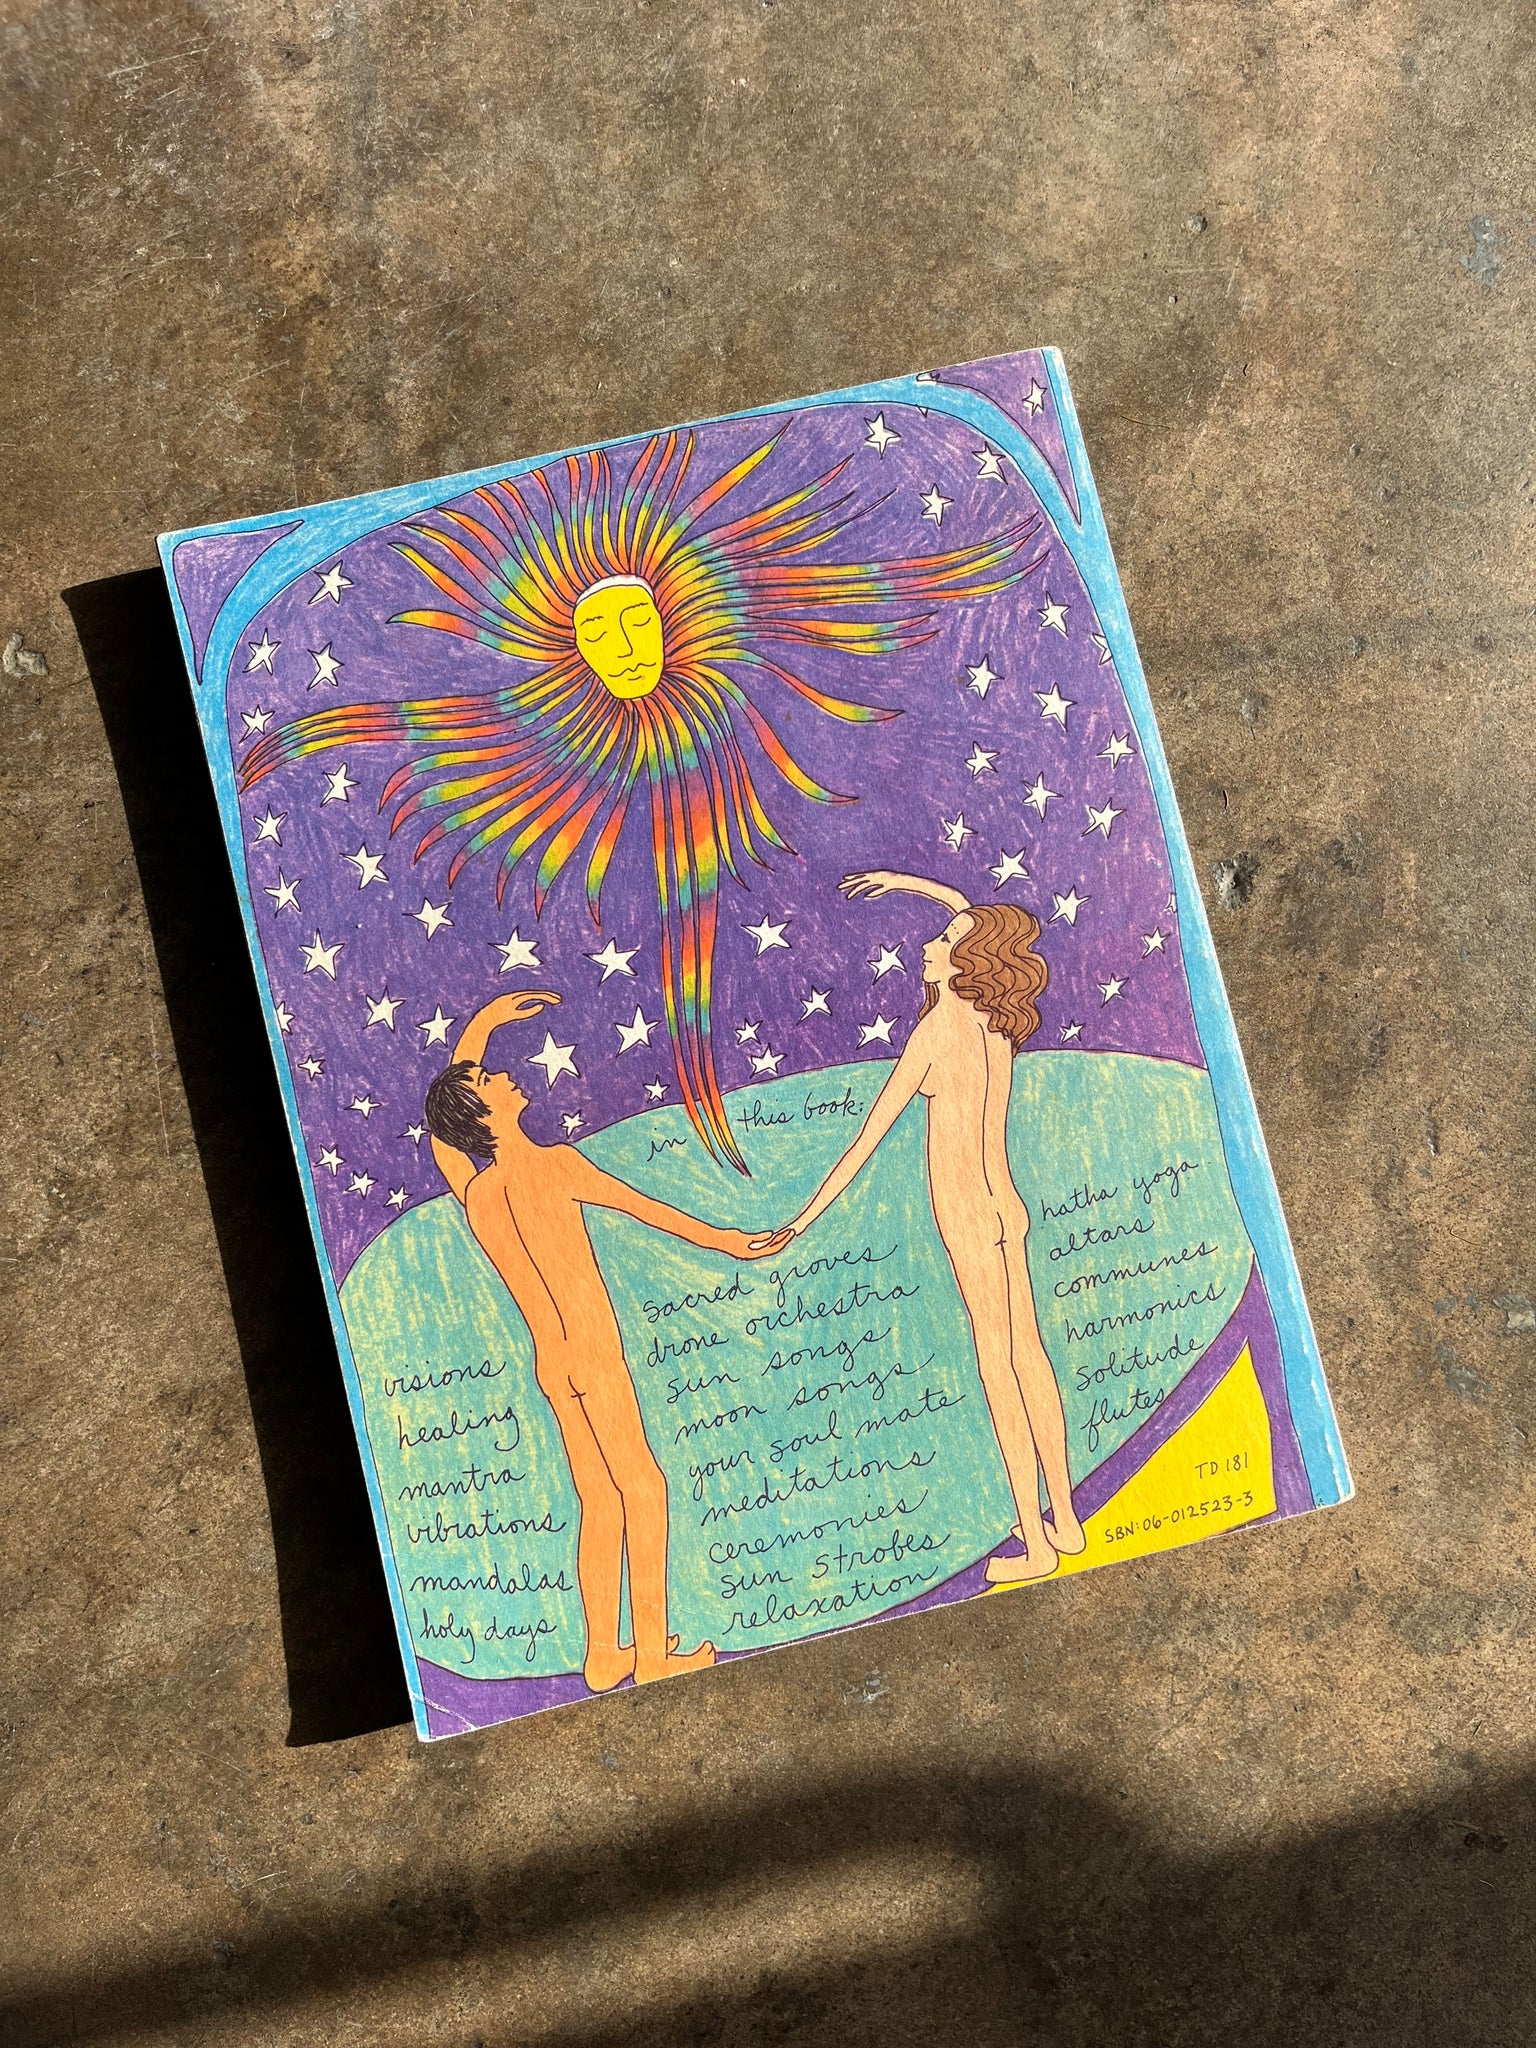 in this book:
visions
healing
mantra
vibrations
mandalas
holy days
sacred groves
drone orchestra
sun songs
moon songs
your soul mate
meditations
ceremonies
sun strobes
relaxation
hatha yoga
altars
communes
harmonics
solitude
flutes
TD 181
SBN: 06-012523-3